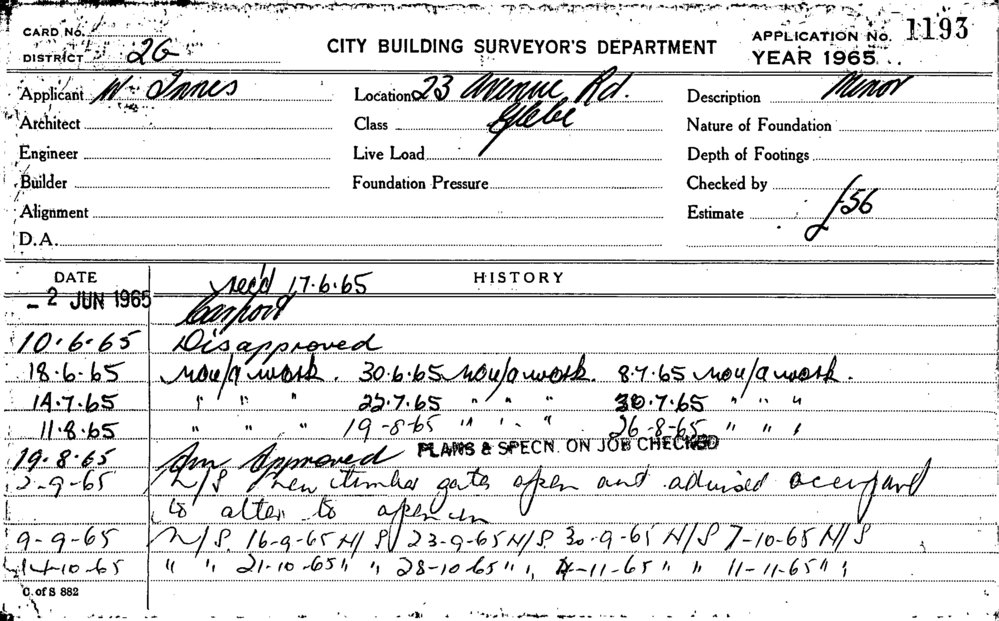 CARD No.
DISTRICT 26
CITY BUILDING SURVEYOR'S DEPARTMENT
APPLICATION No. 1193
YEAR 1965..
Applicant W. Innes
Location 23 Avenue Rd.
Glebe
Description Minor
Architect
Class
Nature of Foundation
Engineer
Live Load
Depth of Footings
Builder
Foundation Pressure
Checked by
Alignment
Estimate £56
D.A.
DATE
rec'd 17.6.65
HISTORY
- 2 JUN 1965
Carport
10.6.65 Disapproved
18.6.65 nou/a work. 30.6.65 nou/a work. 8.7.65 nou/a work.
14.7.65 " " " 22.7.65 " " " 30.7.65 " " "
11.8.65 " " " 19-8-65 " " " 26-8-65 " " "
19.8.65 Am Approved PLANS & SPECN. ON JOB CHECKED
2-9-65 N/S new timber gates open and advised
to alter to open in
9-9-65 N/S. 16-9-65 N/S 23-9-65 N/S. 30-9-65 N/S 7-10-65 N/S
14-10-65 " " 21-10-65 " " 28-10-65 " " 4-11-65 " " 11-11-65 " "
C. of S 882